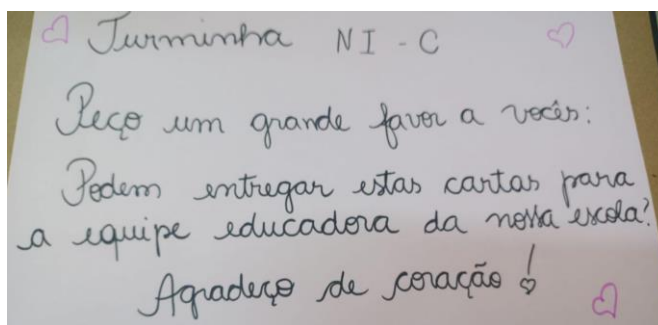 Turminha NI - C
Peço um grande favor a vocês:
Podem entregar estas cartas para
a equipe educadora da nossa escola?
Agradeço de coração!